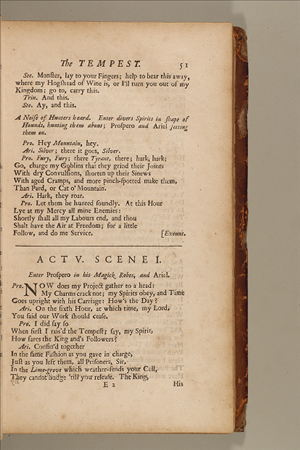 The TEMPEST. 51
Ste. Monster, lay to your Fingers; help to bear this away,
where my Hogshead of Wine is, or I'll turn you out of my
Kingdom; go to, carry this.
Trin. And this.
Ste. Ay, and this.
A Noise of Hunters heard. Enter divers Spirits in shape of
Hounds, hunting them about; Prospero and Ariel setting
them on.
Pro. Hey Mountain, hey.
Ari. Silver; there it goes, Silver.
Pro. Fury, Fury; there Tyrant, there; hark, hark;
Go, charge my Goblins that they grind their Joints
With dry Convulsions, shorten up their Sinews
With aged Cramps, and more pinch-spotted make them,
Than Pard, or Cat o' Mountain.
Ari. Hark, they roar.
Pro. Let them be hunted soundly. At this Hour
Lye at my Mercy all mine Enemies:
Shortly shall all my Labours end, and thou
Shalt have the Air at Freedom; for a little
Follow, and do me Service. [Exeunt.
ACT V. SCENE I.
Enter Prospero in his Magick Robes, and Ariel.
Pro. NOW does my Project gather to a head:
My Charms crack not; my Spirits obey, and Time
Goes upright with his Carriage: How's the Day?
Ari. On the sixth Hour, at which time, my Lord,
You said our Work should cease.
Pro. I did say so
When first I rais'd the Tempest; say, my Spirit,
How fares the King and's Followers?
Ari. Confin'd together
In the same Fashion as you gave in charge,
Just as you left them, all Prisoners, Sir,
In the Lime-grove which weather-fends your Cell,
They cannot budge 'till your release. The King,
E 2 His